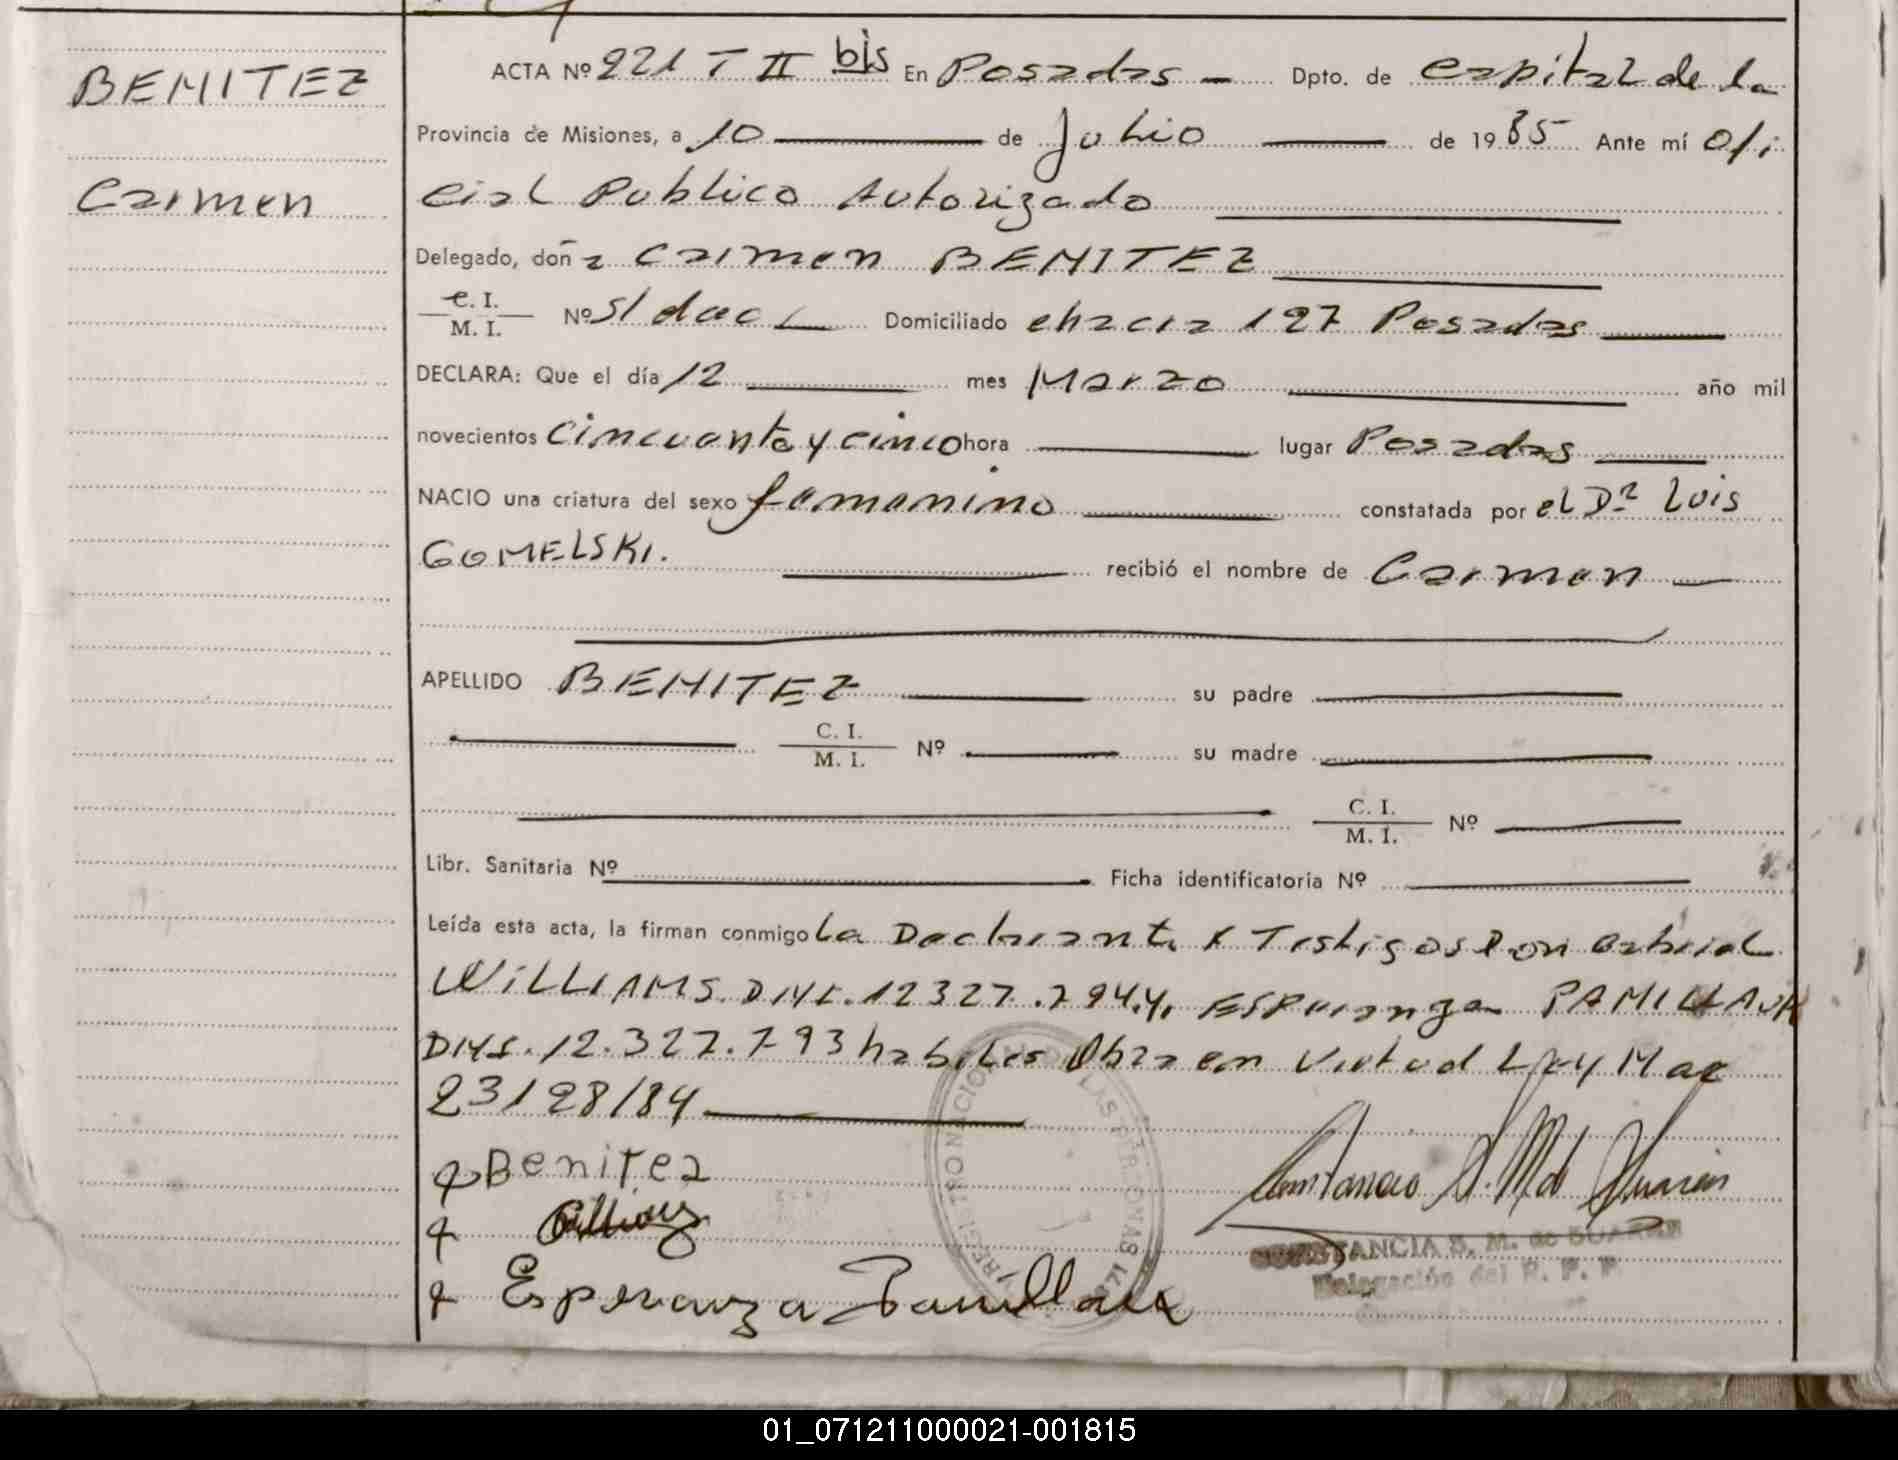 BENITEZ
Carmen
ACTA Nº 221 T II bis En Posadas Dpto. de capital de la
Provincia de Misiones, a 10 de Julio de 1985 Ante mí ofi
cial Publico Autorizado
Delegado, doña Carmen BENITEZ
C. I.
M. I. Nº s/doc Domiciliado chacra 127 Posadas
DECLARA: Que el día 12 mes Marzo año mil
novecientos cincuenta y cinco hora lugar Posadas
NACIO una criatura del sexo femenino constatada por el Dr Luis
GOMELSKI. recibió el nombre de Carmen
APELLIDO BENITEZ su padre
C. I.
M. I. Nº su madre
C. I.
M. I. Nº
Libr. Sanitaria Nº Ficha identificatoria Nº
Leída esta acta, la firman conmigo La Declarante y Testigos Don Gabriel
WILLIAMS. DNI. 12327.794. y. ESPeranza PAMILLAUX
DNI. 12.327.793 habiles Obra en Virtud Ley Nac
23128/84
Benitez
Esperanza Pamillaux
REGISTRO NACIONAL DE LAS PERSONAS
CONSTANCIA S. M. de SUAREZ
Delegación del R. P. P.
01_071211000021-001815